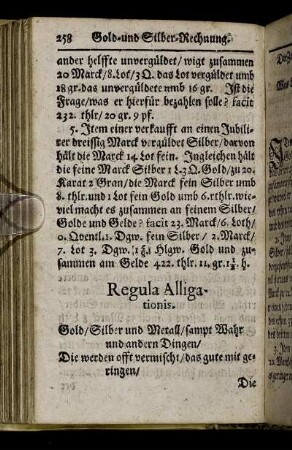 258 Gold-und Silber-Rechnung.
ander helffte unvergüldet/ wigt zusammen
20 Marck/8.Lot/3 Q. das Lot vergüldet umb
18 gr. das unvergüldete umb 16 gr. Ist die
Frage/was er hierfür bezahlen solle? facit
232. thlr/20 gr. 9 pf.
5. Item einer verkaufft an einen Jubili-
rer dreissig Marck vergüldet Silber/darvon
hält die Marck 14 Lot fein. Ingleichen hält
die feine Marck Silber 1 L.3 Q. Gold/zu 20.
Karat 2 Gran/die Marck fein Silber umb
8. thlr. und 1 Lot fein Gold umb 6. rthlr. wie-
viel macht es zusammen an feinem Silber/
Golde und Gelde? facit 23. Marck/6. Loth/
0. Qventl. 1. Dgw. fein Silber/ 2. Marck/
7. Lot 3. Dgw. Hlgw. Gold und zu-
sammen am Gelde 422. thlr. 11. gr. 1½. h.
Regula Alliga-
tionis.
Gold/Silber und Metall/sampt Wahr
und andern Dingen/
Die werden offt vermischt/das gute mit ge-
ringen/
Die